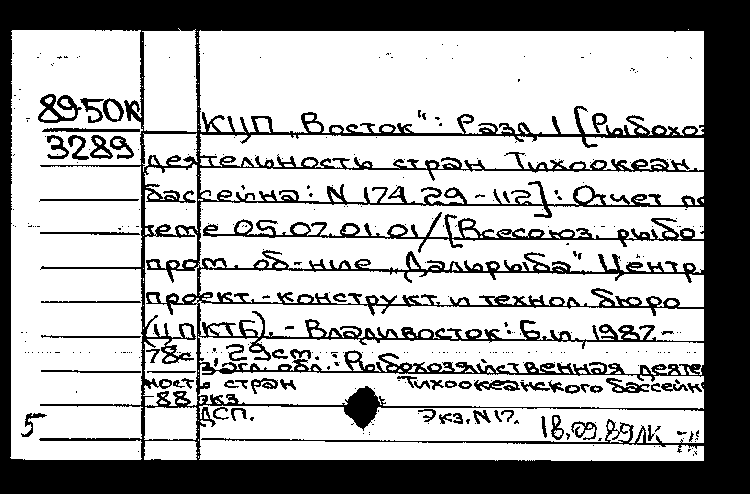 89-50К
3289
КЦП „Восток": Разд. 1 [Рыбохоз
деятельность стран Тихоокеан.
бассейна: N 174.29-112]: Отчет по
теме 05.07.01.01/[Всесоюз. рыбо-
пром. об-ние „Дальрыба" Центр.
проект.-конструкт. и технол. бюро
(ЦПКТБ). - Владивосток: Б.и., 1987.-
78с.; 29см.
Загл. обл.: Рыбохозяйственная деятель
ность стран Тихоокеанского бассейн
88 экз.
ДСП. Экз. N 17. 18.09.89 ЛК
5